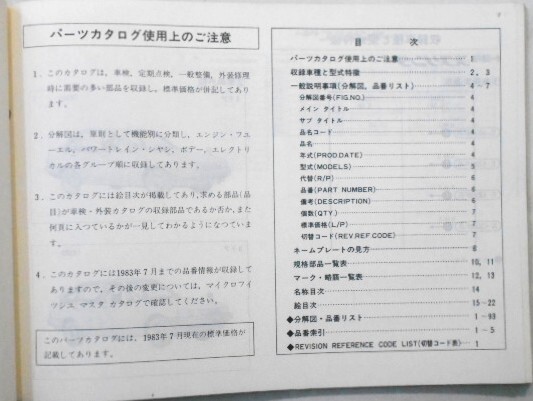 パーツカタログ使用上のご注意
1. このカタログは、車検、定期点検、一般整備、外装修理
時に需要の多い部品を収録し、標準価格が併記してあり
ます。
2. 分解図は、原則として機能別に分類し、エンジン・フユ
ーエル、パワートレイン・シヤシ、ボデー、エレクトリ
カルの各グループ順に収録してあります。
3. このカタログには絵目次が掲載してあり、求める部品(品
目)が車検・外装カタログの収録部品であるか否か、また
何頁に入つているかが一見してわかるようになつていま
す。
4. このカタログには1983年7月までの品番情報が収録して
ありますので、その後の変更については、マイクロフイ
ツシユ マスタ カタログで確認してください。
このパーツカタログには、1983年7月現在の標準価格が
記載してあります。
目 次
パーツカタログ使用上のご注意 1
収録車種と型式特徴 2, 3
一般説明事項(分解図、品番リスト) 4-7
分解図番号(FIG.NO.) 4
メイン タイトル 4
サブ タイトル 4
品名コード 4
品名 4
年式(PROD.DATE) 4
型式(MODELS) 5
代替(R/P) 6
品番(PART NUMBER) 6
備考(DESCRIPTION) 6
個数(QTY) 7
標準価格(L/P) 7
切替コード(REV.REF.CODE) 7
ネームプレートの見方 8
規格部品一覧表 10, 11
マーク・略語一覧表 12, 13
名称目次 14
絵目次 15-22
◆分解図・品番リスト 1-93
◆品番索引 1-5
◆REVISION REFERENCE CODE LIST(切替コード表) 1